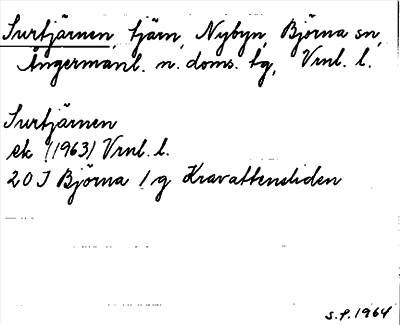 Surtjärnen, tjärn, Nybyn, Björna sn,
Ångermanl. n. doms. tg, Vrnl. l.
Surtjärnen
ek (1963) Vrnl. l.
20 J Björna 1 g Kravattensliden
S.f. 1964